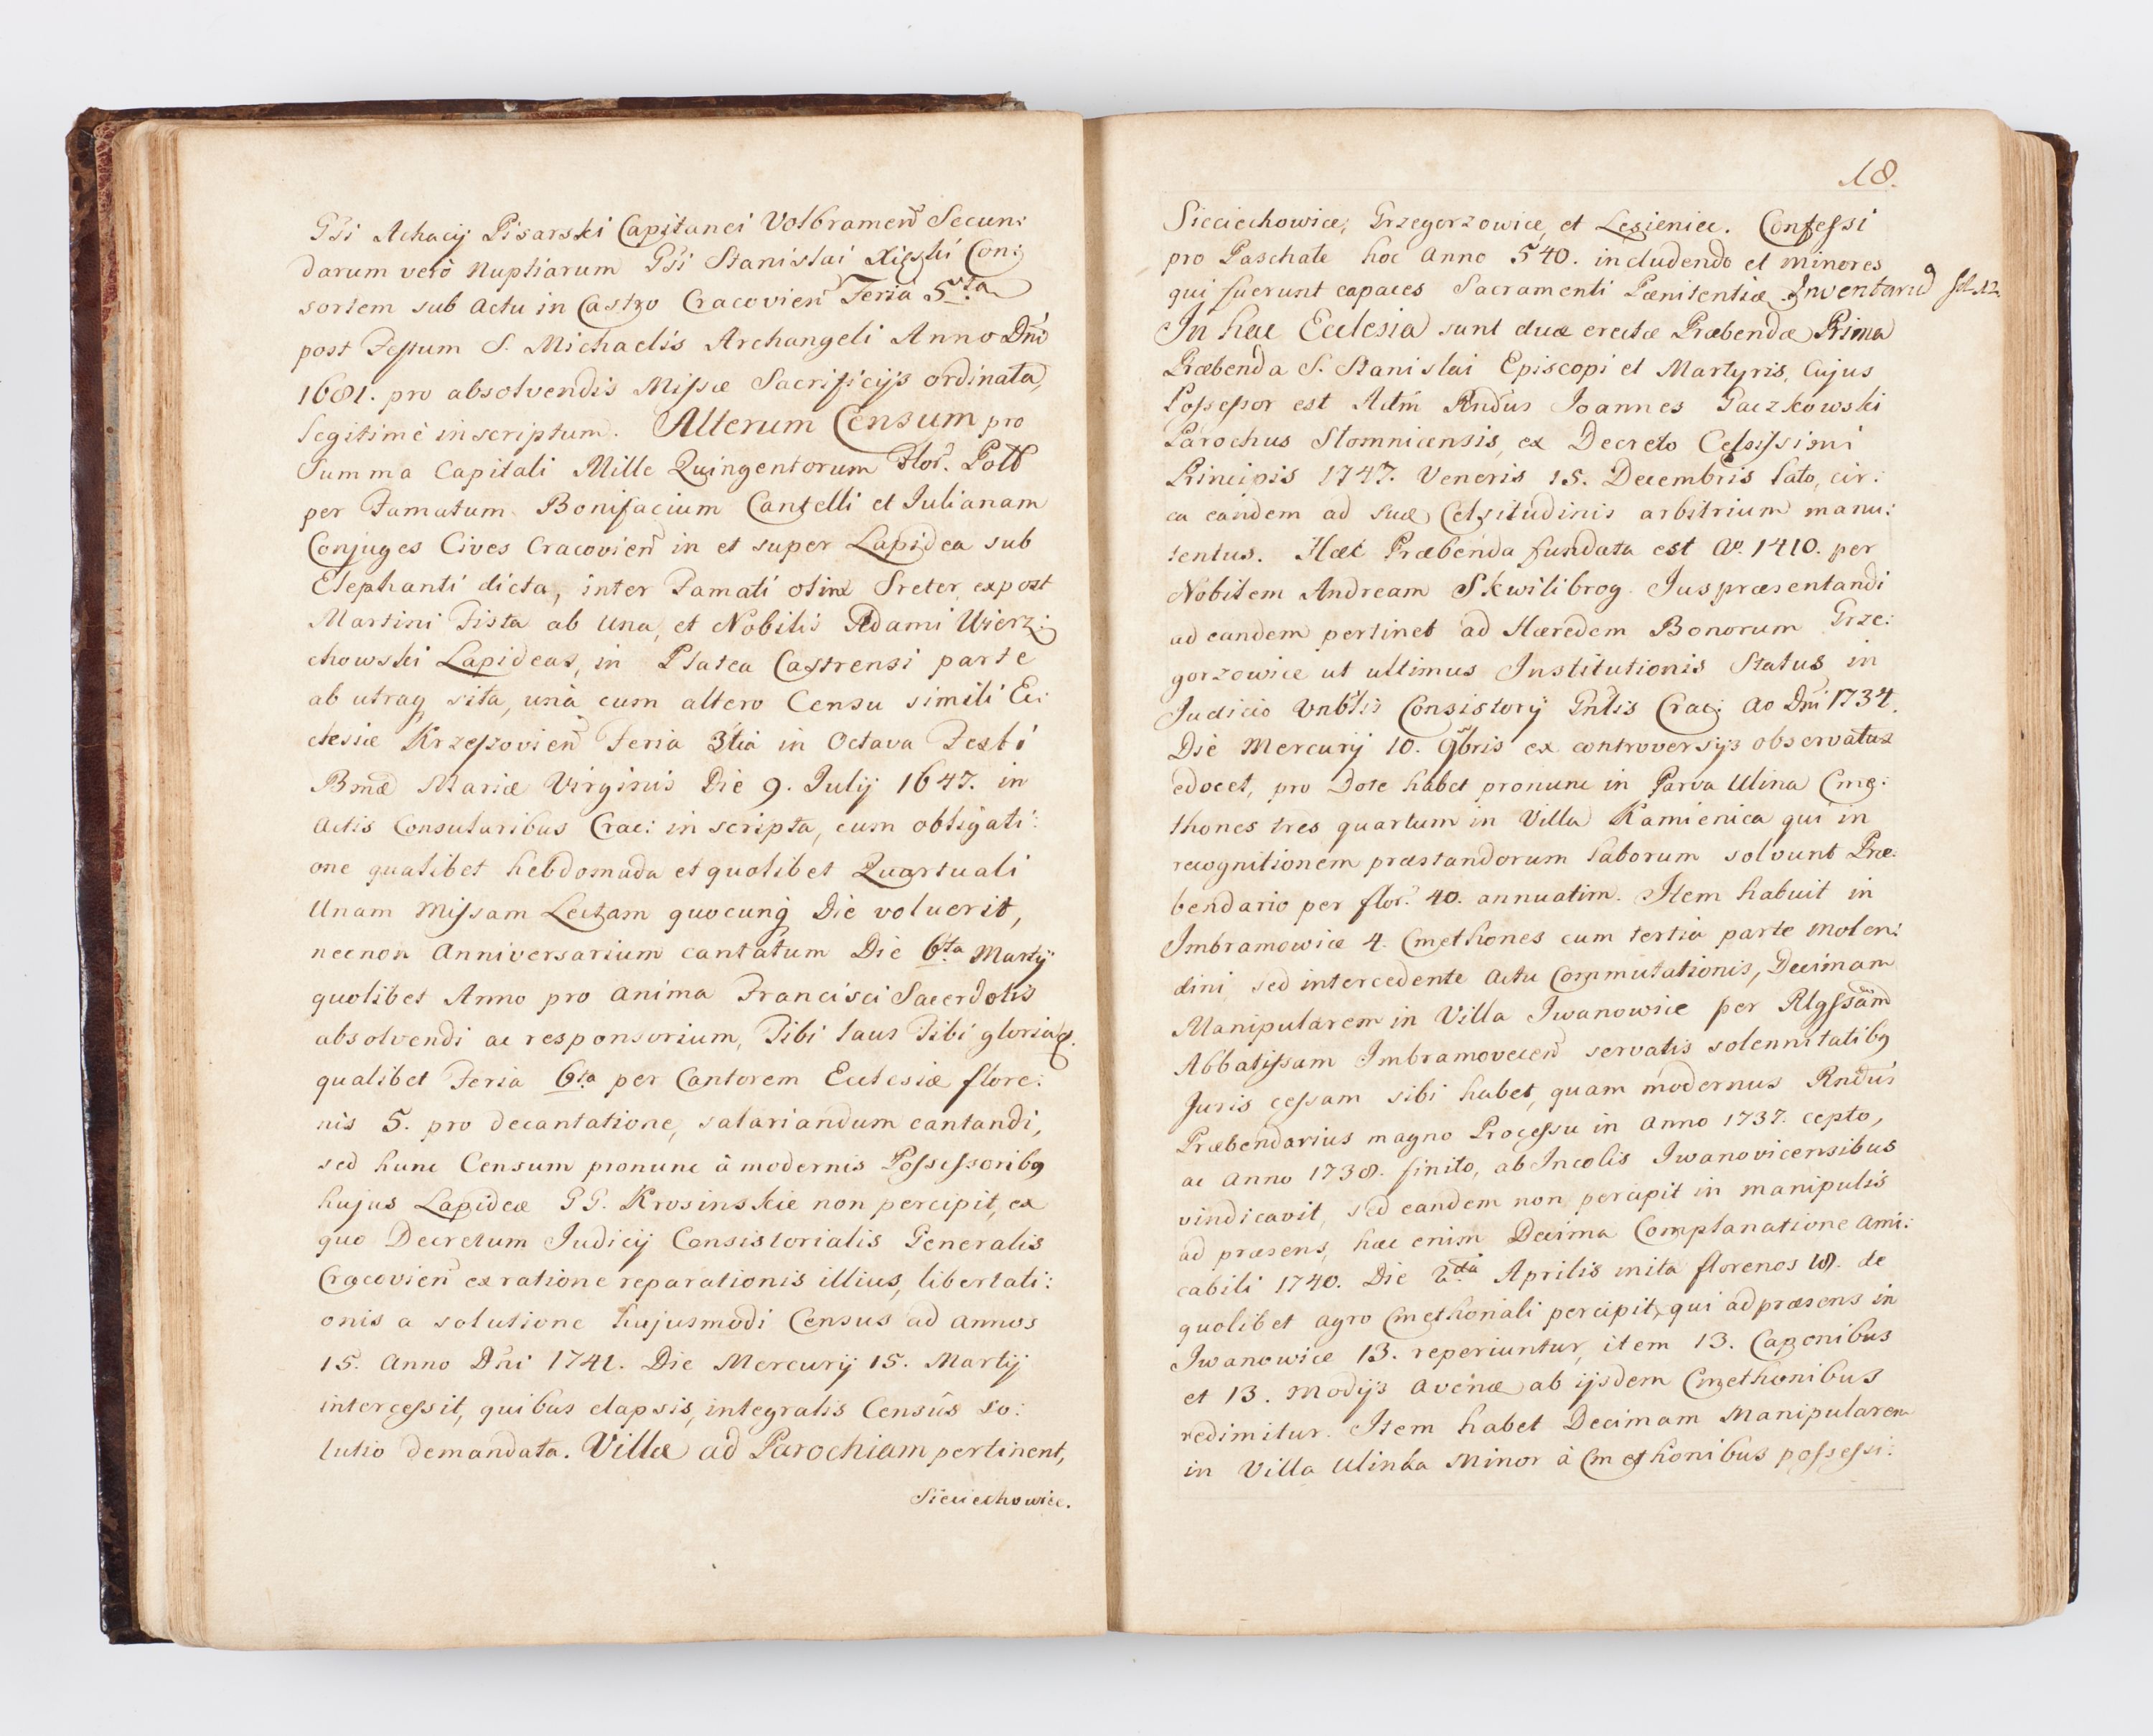 Gsi Achacij Pisarski Capitanei Volbramen Secun:
darum verò Nuptiarum Gsi Stanislai Xięski Con:
sortem sub Actu in Castro Cracovien Feria 5ta
post Festum S. Michaelis Archangeli Anno Dni
1681. pro absolvendis Missæ Sacrificijs ordinata,
legitimè inscriptum. Alterum Censum pro
Summa Capitali Mille Quingentorum Flor. Poll
per Famatum Bonifacium Cantelli et Iulianam
Conjuges Cives Cracovien in et super Lapidea sub
Elephanti dicta, inter Famati olim Sreter, expost
Martini Fista ab una, et Nobilis Adami Wierz:
chowski Lapideas, in Platea Castrensi parte
ab utraq sita, unà cum altero Censu simili Ec:
clesiæ Krzeszovien Feria 3tia in Octava Festi
Bmæ Mariæ Virginis Die 9. Julij 1647. in
Actis Consularibus Crac: inscripta, cum obligati:
one qualibet hebdomada et quolibet Quartuali
Unam Missam Lectam quocunq Die voluerit,
necnon Anniversarium cantatum Die 6ta Martij
quolibet Anno pro anima Francisci Sacerdotis
absolvendi ac responsorium, Tibi laus Tibi gloria &.
qualibet Feria 6ta per Cantorem Ecclesiæ flore:
nis 5. pro decantatione, salariandum cantandi,
sed hunc Censum pronunc à modernis Possessoribq
hujus Lapideæ GG. Krosinskie non percipit, ex
quo Decretum Judicij Consistorialis Generalis
Cracovien ex ratione reparationis illius, libertati:
onis a solutione hujusmodi Census ad annos
15. Anno Dni 1741. Die Mercurij 15. Martij
intercessit, quibus elapsis, integralis Censûs so:
lutio demandata. Villæ ad Parochiam pertinent,
Sieciechowice.
18.
Sieciechowice, Grzegorzowice, et Lesieniec. Confessi
pro Paschate hoc Anno 540. includendo et minores
qui fuerunt capaces Sacramenti Pænitentiæ Inventariu fol. 12
In hac Ecclesia sunt duæ erectæ Præbendæ Prima
Præbenda S. Stanislai Episcopi et Martyris, Cujus
Possessor est Adm Rndus Joannes Paczkowski
Parochus Slomnicensis, ex Decreto Celsissimi
Principis 1747. Veneris 15. Decembris lato, cir:
ca eandem ad suæ Celsitudinis arbitrium manu:
tentus. Hæc Præbenda fundata est Ao. 1410. per
Nobilem Andream Skwilibrog. Jus præsentandi
ad eandem pertinet ad Hæredem Bonorum Grze:
gorzowice ut ultimus Institutionis Status in
Judicio Vnblis Consistorij Gnlis Crac: Ao Dni 1734.
Die Mercurij 10. 9bris ex controversijs observatus
edocet, pro Dote habet pronunc in Parva Ulina Cme:
thones tres quartum in Villa Kamienica qui in
recognitionem præstandorum laborum solvunt Præ:
bendario per flor. 40. annuatim. Item habuit in
Imbramowice 4. Cmethones cum tertia parte Molen:
dini sed intercedente Actu Commutationis, Decimam
Manipularem in Villa Iwanowice per Rlgssam
Abbatissam Imbramovecen servatis solennitatibq
Juris cessam sibi habet, quam modernus Rndus
Præbendarius magno Processu in Anno 1737. cepto,
ac Anno 1738. finito, ab Incolis Iwanovicensibus
vindicavit, sed eandem non percipit in manipulis
ad præsens, hæc enim Decima Complanatione ami:
cabili 1740. Die 2da Aprilis inita florenos 18. de
quolibet agro Cmethonali percipit, qui ad præsens in
Iwanowice 13. reperiuntur, item 13. Caponibus
et 13. Modijs Avenæ ab ijsdem Cmethonibus
redimitur. Item habet Decimam Manipularem
in Villa Ulinka Minor à Cmethonibus possessi: